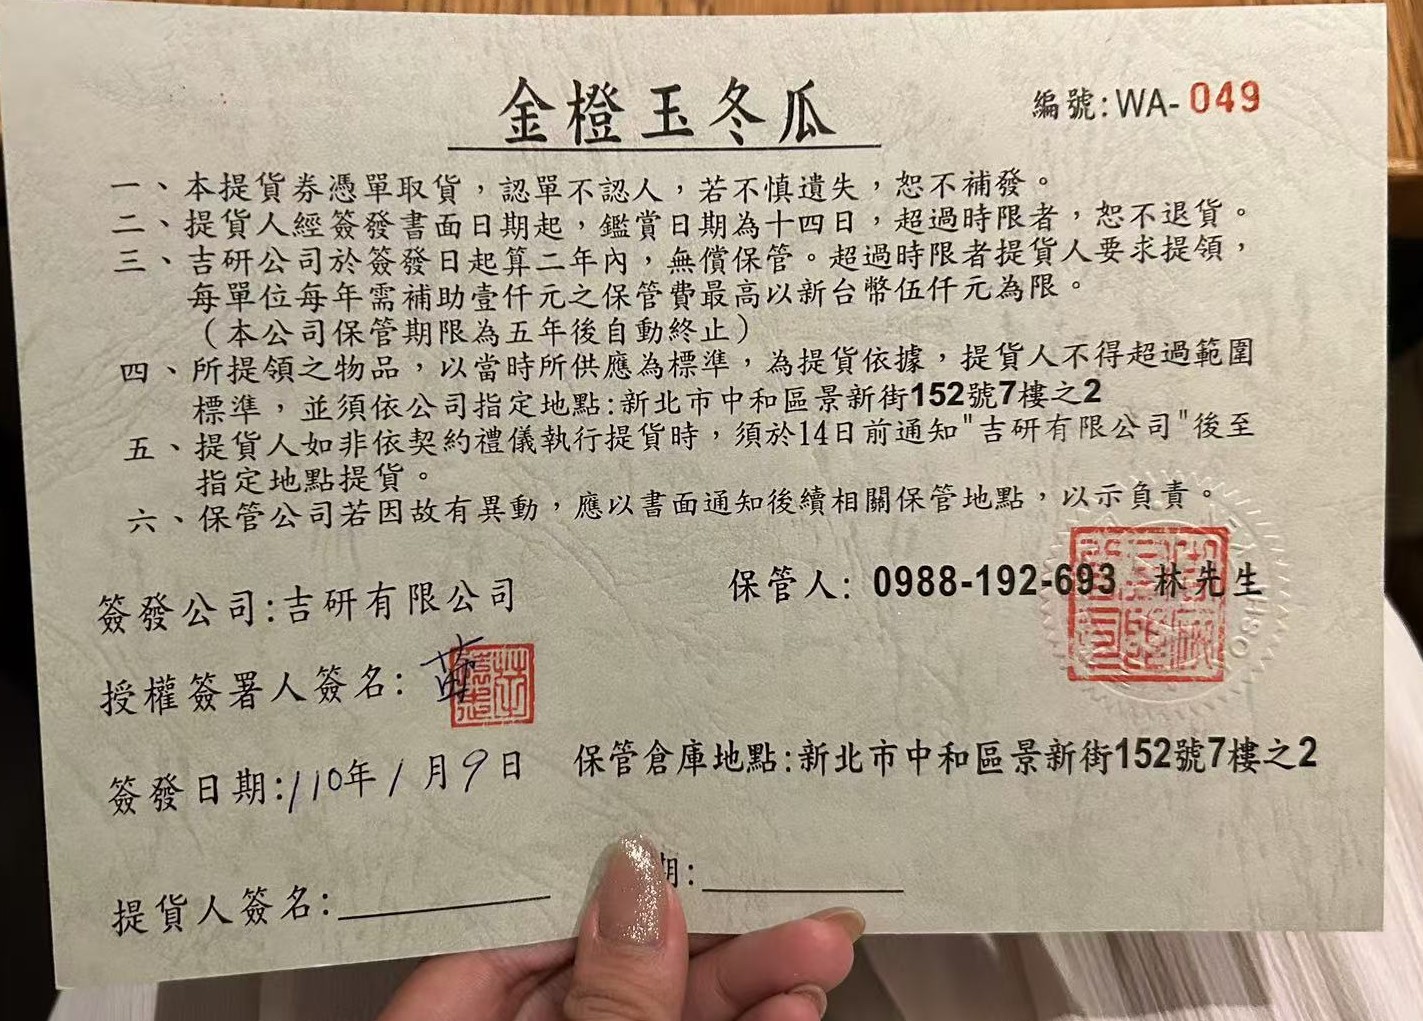 金橙玉冬瓜
編號:WA-049
一、本提貨券憑單取貨，認單不認人，若不慎遺失，恕不補發。
二、提貨人經簽發書面日期起，鑑賞日期為十四日，超過時限者，恕不退貨。
三、吉研公司於簽發日起算二年內，無償保管。超過時限者提貨人要求提領，
每單位每年需補助壹仟元之保管費最高以新台幣伍仟元為限。
（本公司保管期限為五年後自動終止）
四、所提領之物品，以當時所供應為標準，為提貨依據，提貨人不得超過範圍
標準，並須依公司指定地點:新北市中和區景新街152號7樓之2
五、提貨人如非依契約禮儀執行提貨時，須於14日前通知"吉研有限公司"後至
指定地點提貨。
六、保管公司若因故有異動，應以書面通知後續相關保管地點，以示負責。
簽發公司:吉研有限公司
保管人: 0988-192-693 林先生
授權簽署人簽名:
簽發日期:110年1月9日
保管倉庫地點:新北市中和區景新街152號7樓之2
提貨人簽名:
期: